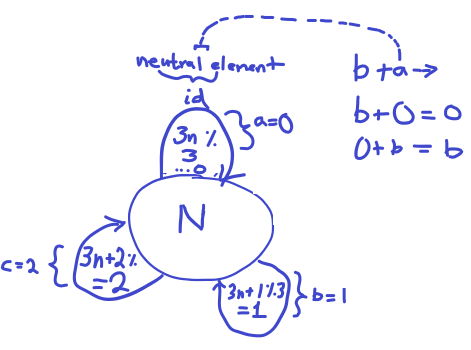 neutral element
id
3n %
3
...0
a=0
b+a→
b+0=0
0+b=b
N
c=2
3n+2%
=2
3n+1%3
=1
b=1